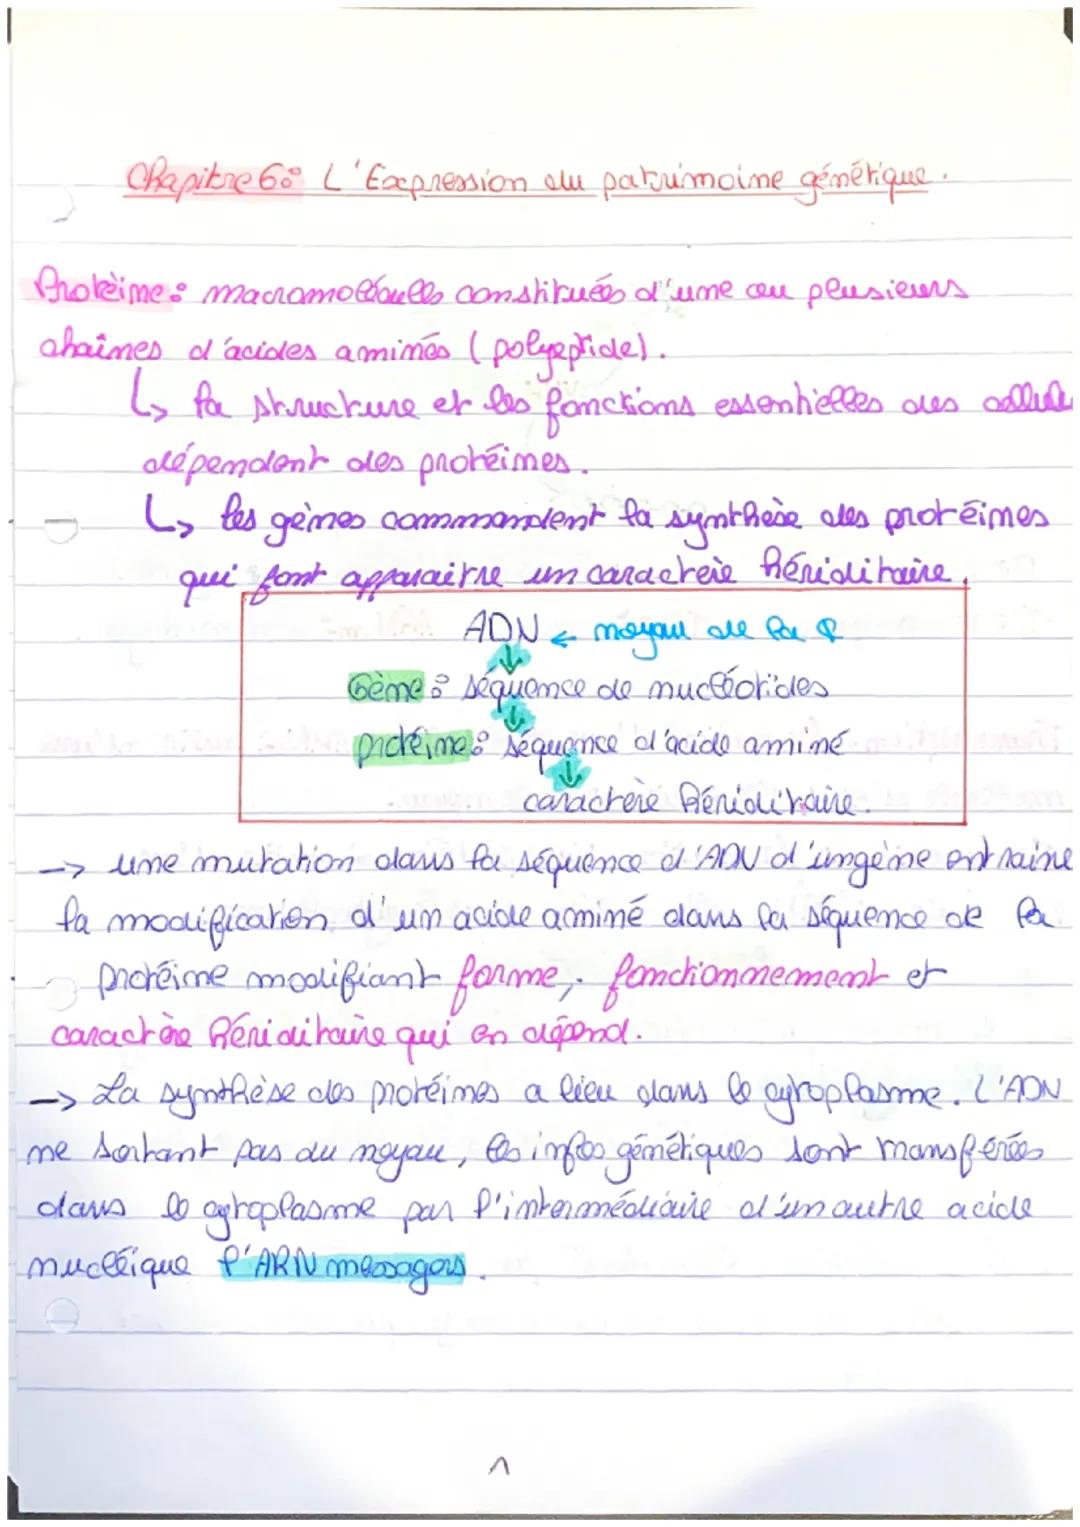 Chapitre 6: L'Expression du patrimoine génétique.
Protéine: macromolécules constituées d'une ou plusieurs
chaînes d'acides aminés (polypeptide).
↳ la structure et les fonctions essentielles des cellule
dépendent des protéines.
↳ les gènes commandent la synthèse des protéines
qui font apparaitre un caractère hériditaire.
ADN ← noyau de la
↓
Gène: séquence de nucléotides
↓
protéine: séquence d'acide aminé
↓
caractère hériditaire.
--> une mutation dans la séquence d'ADN d'un gène entraine
la modification d'un acide aminé dans la séquence de la
protéine modifiant forme, fonctionnement et
caractère hériditaire qui en dépend.
--> La synthèse des protéines a lieu dans le cytoplasme. L'ADN
ne sortant pas du noyau, les infos génétiques sont transférées
dans le cytoplasme par l'intermédiaire d'un autre acide
nucléique l'ARN messagers.
1